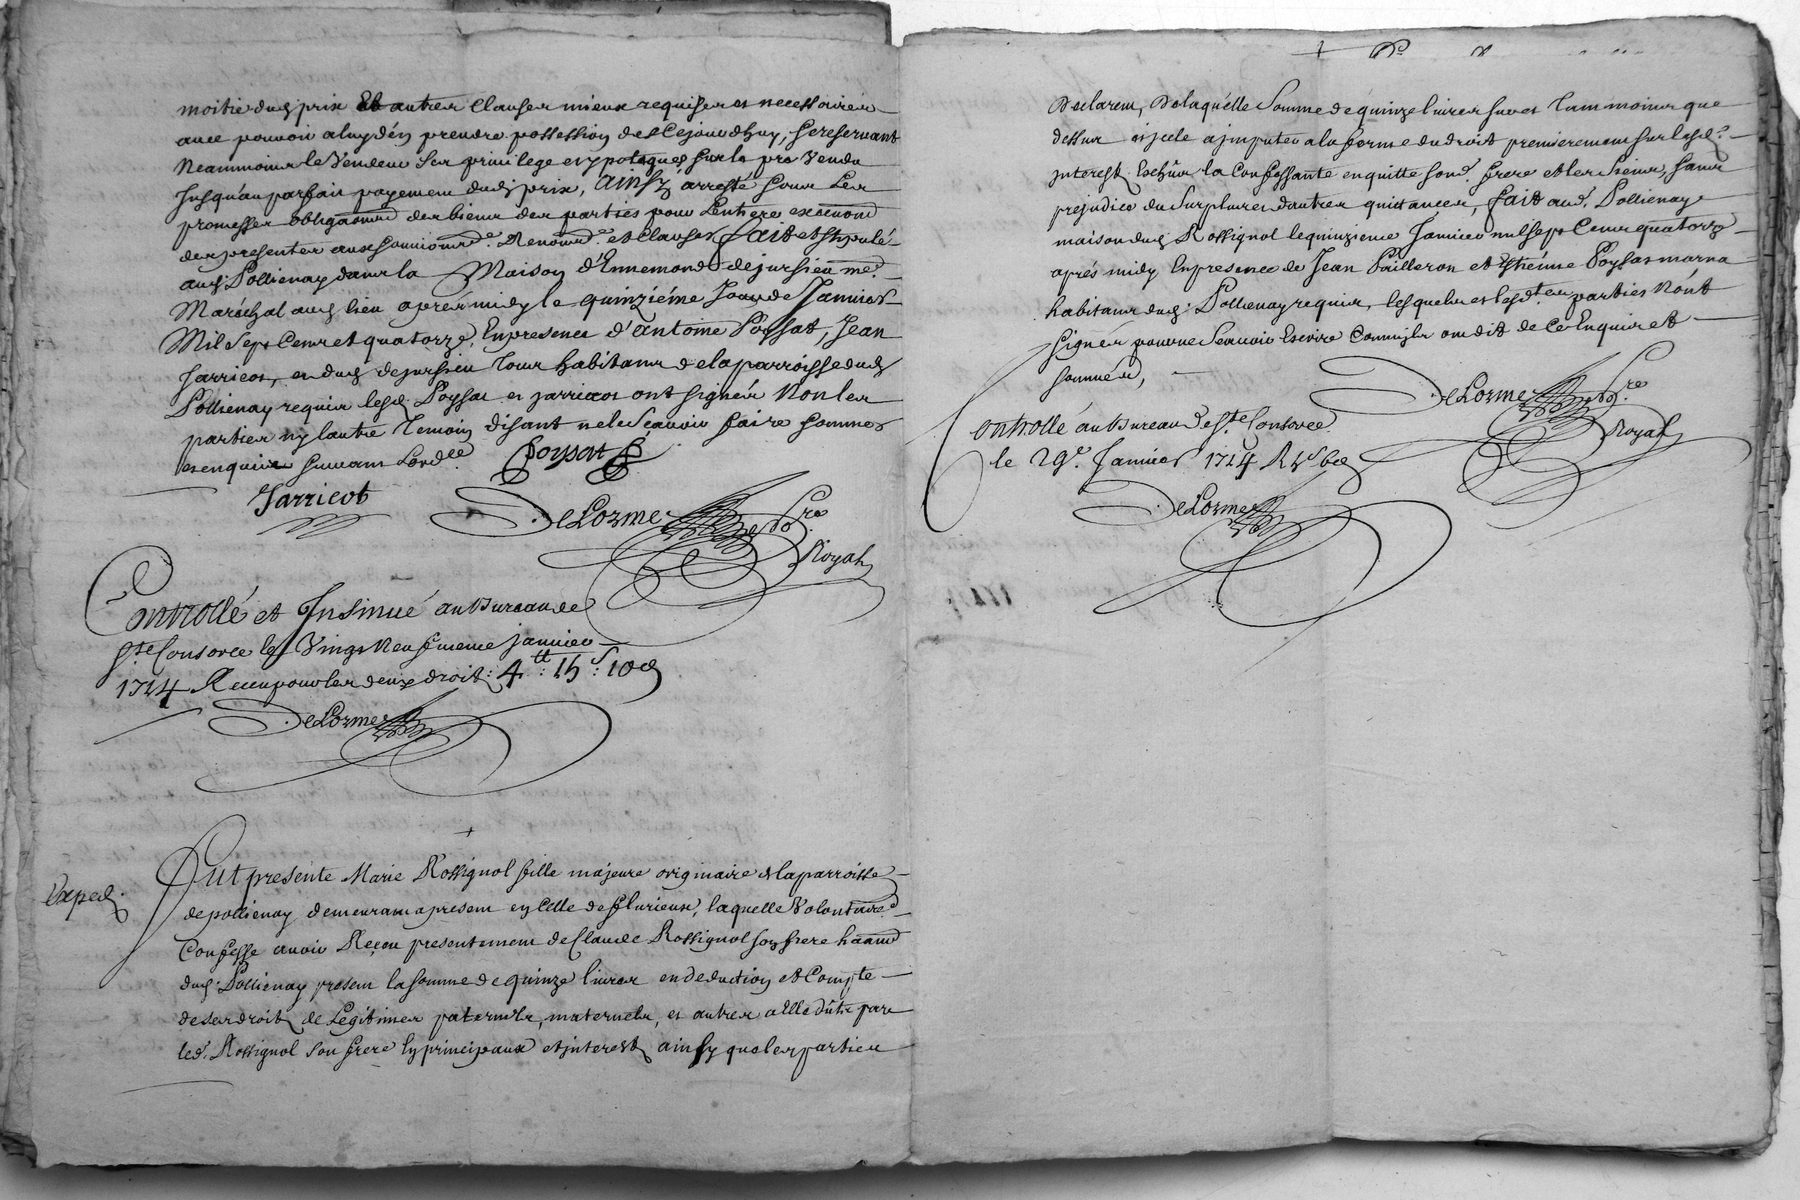 moitié dud prix Et autres Clauses mieux requises et necessaires
avec pouvoir aluy d'en prendre possession des Cejourdhuy, se reservant
Neanmoins le Vendeur Ses privilege et ypoteques sur le pré Vendu
Jusqu'au parfait payement dud prix, Ainsy arresté sous Les
promesses obligaōns des biens des parties pour L'entiere execuōn
des presentes aux soumiōns Renonōns et Clauses, fait et stipulé
aud Pollienay dans la Maison d'Ennemond dejussieu me
Maréchal aud lieu apres midy le quinziéme Jour de Janvier
Mil Sept Cens et quatorze, En presence d'antoine Poyssat, Jean
Jarricot, et dud dejussieu tous habitans de la parroisse dud
Pollienay requis lesd Poyssat et jarricot ont signés Non les
parties ny l'autre temoin disant ne le Scavoir faire sommés
et enquis suivant L'ordce
Poyssat
Jarricot
DeLorme nore
Royal
Controllé et Insinué au Bureau de
Ste Consorce le Vingt Neufvieme janvier
1714 Receu pour les deux droits: 4tt: 15s: 10d
DeLorme
Exped.
Fut presente Marie Rossignol fille majeure originaire de la parroisse
de pollienay demeurant a present en Celle de flurieux, laquelle Volontaire
Confesse avoir Reçeu presentement de Claude Rossignol son frere
dud. Pollienay present la somme de quinze livres en deduction et Compte
de ses droits de Legitimes paternels, maternels, et autres a Elle dûts par
led. Rossignol Son frere en principaux et interests ainsy que les parties
Declarent, De laquelle Somme de quinze livres sur et tant moins que
dessus a jmputer a la forme du droit premierement sur lesd
jnterests Eschûs la Confessante en quitte sond. frere et les Siens, sans
prejudice du Surplus et d'autres quittances, fait aud. Pollienay
maison dud Rossignol le quinzieme Janvier mil sept Cens quatorze
aprés midy En presence de Jean Pailleron et Estienne Poyssat
habitans dud. Pollienay requis, lesquels et lesdtes parties N'ont
signés pour ne Scavoir Escrire Comme ils ont dit de Ce Enquis et
sommés,
DeLorme nore
Royal
Controllé au Bureau de Ste Consorce
le 29e Janvier 1714
DeLorme